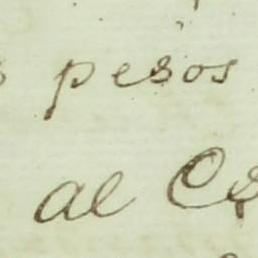 pesos
al